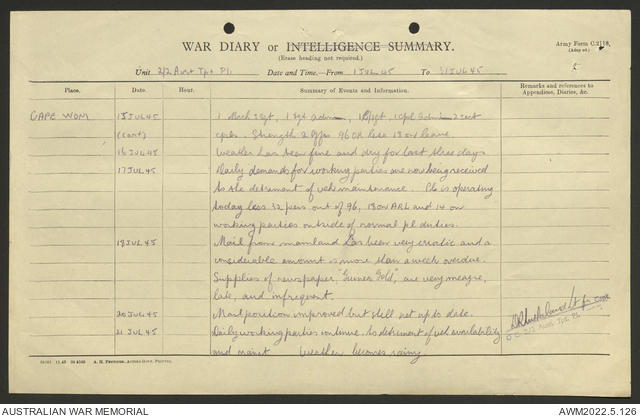 WAR DIARY or INTELLIGENCE SUMMARY.
(Erase heading not required.)
Army Form C.2118.
Unit 2/2 Aust Tpt Pl. Date and Time—From 1 JUL 45 To 31 JUL 45
Place. Date. Hour. Summary of Events and Information. Remarks and references to Appendices, Diaries, &c.
CAPE WOM 15 JUL 45 1 Mech Sgt, 1 Sgt admin, 1 Cpl admin 2 sect
(cont) cpls. Strength 2 offrs 96 OR less 18 on leave.
16 JUL 45 Weather has been fine and dry for last three days
17 JUL 45 Daily demands for working parties are now being received
to the detriment of veh maintenance. Pl is operating
today less 32 pers out of 96, 18 on ARL and 14 on
working parties outside of normal pl duties.
18 JUL 45 Mail from mainland has been very erratic and a
considerable amount is more than a week overdue.
Supplies of newspaper, "Guinea Gold", are very meagre,
late, and infrequent.
20 JUL 45 Mail position improved but still not up to date.
21 JUL 45 Daily working parties continue to detriment of veh availability
and maint Weather becomes rainy.
Lt for
O.C. 2/2 Aust Tpt Pl
AUSTRALIAN WAR MEMORIAL AWM2022.5.126